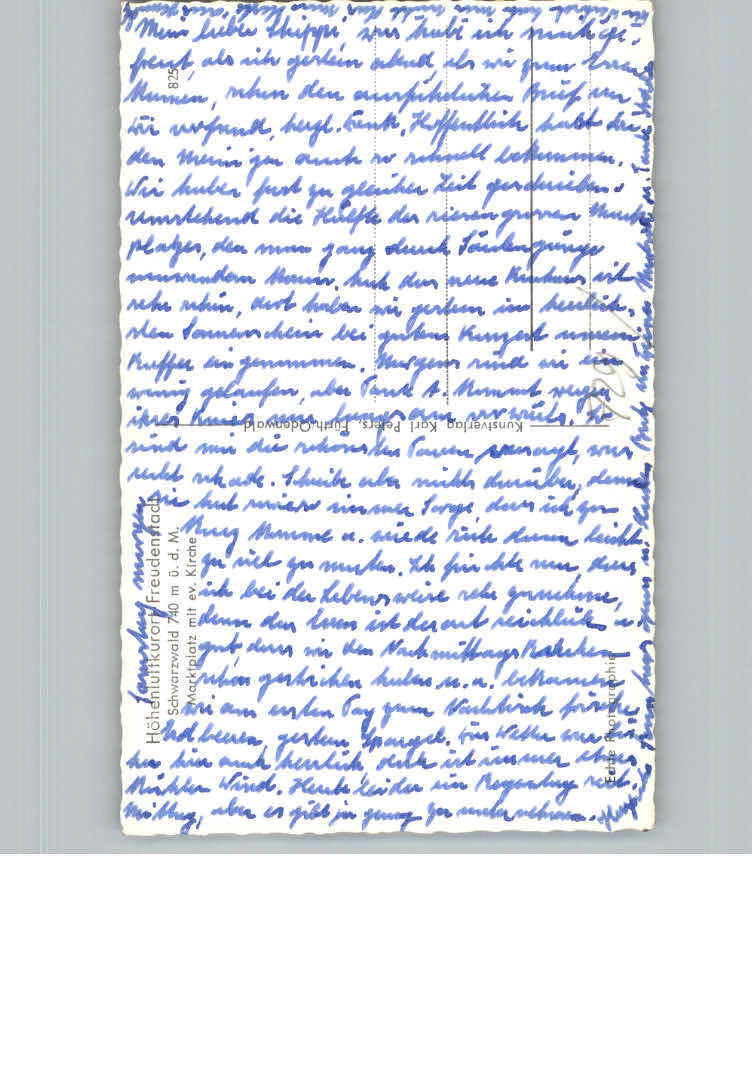 Mein lieber Schippi, was habe ich mich ge-
freut, als ich gestern abend, als wir zum Essen
kamen, schon den ausführlichen Brief von
Dir vorfand, herzl. Dank. Hoffentlich hast Du
den Meinigen auch so schnell bekommen.
Wir haben fast zu gleicher Zeit geschrieben.
Umstehend die Hälfte des riesengrossen Markt-
platzes, den man ganz durch Säulengänge
umwandern kann. Auch das neue Kurhaus ist
sehr schön, dort haben wir gestern im herrlich-
sten Sonnenschein bei gutem Konzert unsern
Kaffee eingenommen. Morgens sind wir ein
wenig gelaufen, aber Tante kommt wegen
ihres Knies nur langsam vorwärts. So
sind mir die schönsten Touren versagt, was
recht schade. Schreibe aber nichts darüber, denn
sie hat sowieso immer Sorge, dass ich zu
kurz komme u. würde sich dann leicht
zu viel zu muten. Ich fürchte nur, dass
ich bei der Lebensweise sehr zunehme,
denn das Essen ist derart reichlich u.
gut, dass wir den Nachmittags Kuchen
schon gestrichen haben u. a. bekamen
wir am ersten Tag zum Nachtisch frische
Erdbeeren, gestern Spargel. Das Wetter war bis-
her hier auch herrlich, doch ist immer etwas
kühler Wind. Heute leider ein Regentag seit
Mittag, aber es gibt ja genug zu unternehmen.
Samstag morgen
825
Höhenluftkurort Freudenstadt
Schwarzwald 740 m ü. d. M.
Marktplatz mit ev. Kirche
Kunstverlag Karl Peters, Fürth/Odenwald
Echte Photographie